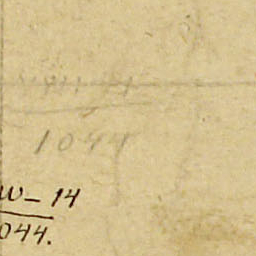 1044
W-14
044.